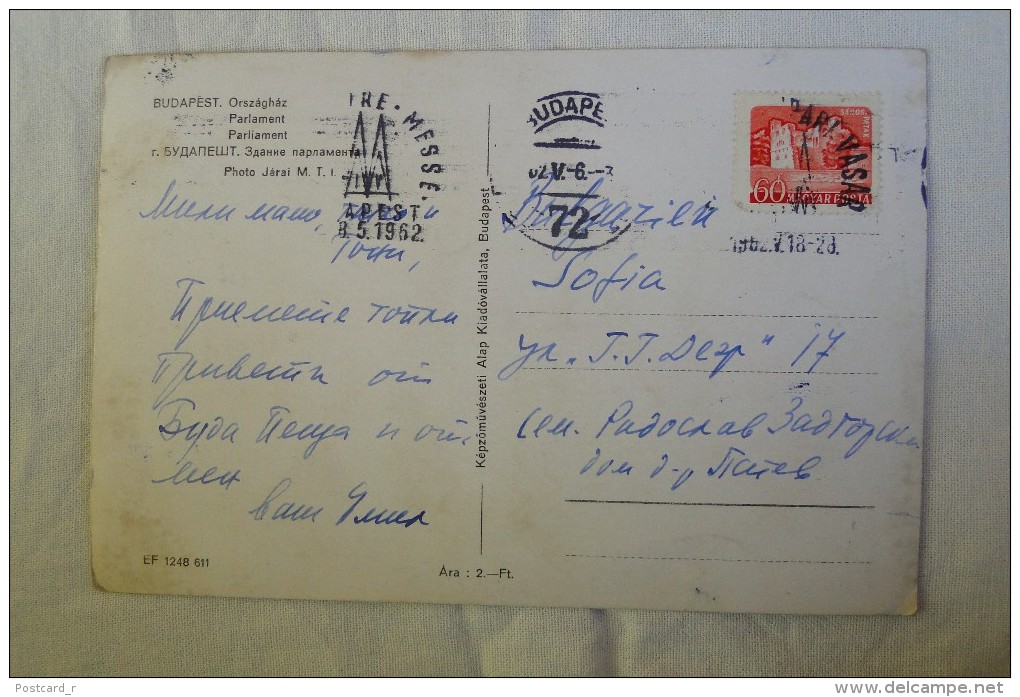 BUDAPEST. Országház
Parlament
Parliament
г. БУДАПЕШТ. Здание парламента
Photo Járai M. T. I.
IRE. MESSE.
APEST
8.5.1962.
BUDAPE
62.V.-6.—
72
SÁROS
PATAK
60 MAGYAR POSTA
IPARI VÁSÁR
1962.V.18-28.
Képzőművészeti Alap Kiadóvállalata, Budapest
Мили мамо,
Тони,
Приемете топли
Привети от
Буда Пеща и от
мен
ваш Емил
Bulgarien
Sofia
ул „Г. Г. Деж" 17
сем. Радослав Задгорски
дом д-р Патев
EF 1248 611
Ára : 2.—Ft.
Postcard_r
http://www.delcampe.net